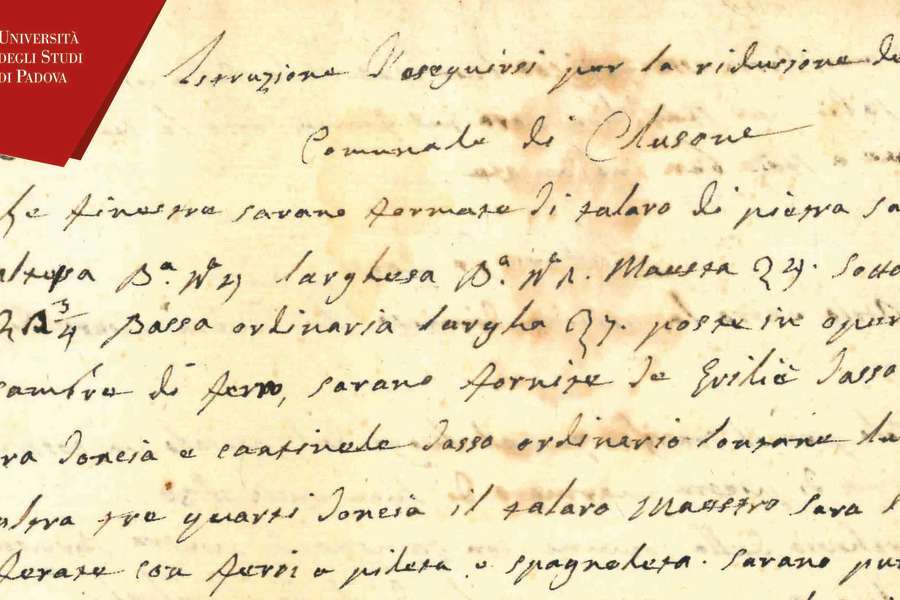 UNIVERSITÀ
DEGLI STUDI
DI PADOVA
Istruzione d'eseguirsi per la ridusione de
Comunale di Clusone
he finestre sarano formate di talaro di pietra sa
altesa B.a N.a 4 larghesa B.a N.a 1. Maestà 24. sotto
3/4 Bassa ordinaria largha 7. poste in oper
cambre di ferro, sarano fornite de dasso
ra doncià e cantinele dasso ordinario lontane la
altra tre quarti doncià il talaro Maestro sara
ferate con ferri a pileta o spagnoleta. sarano pu